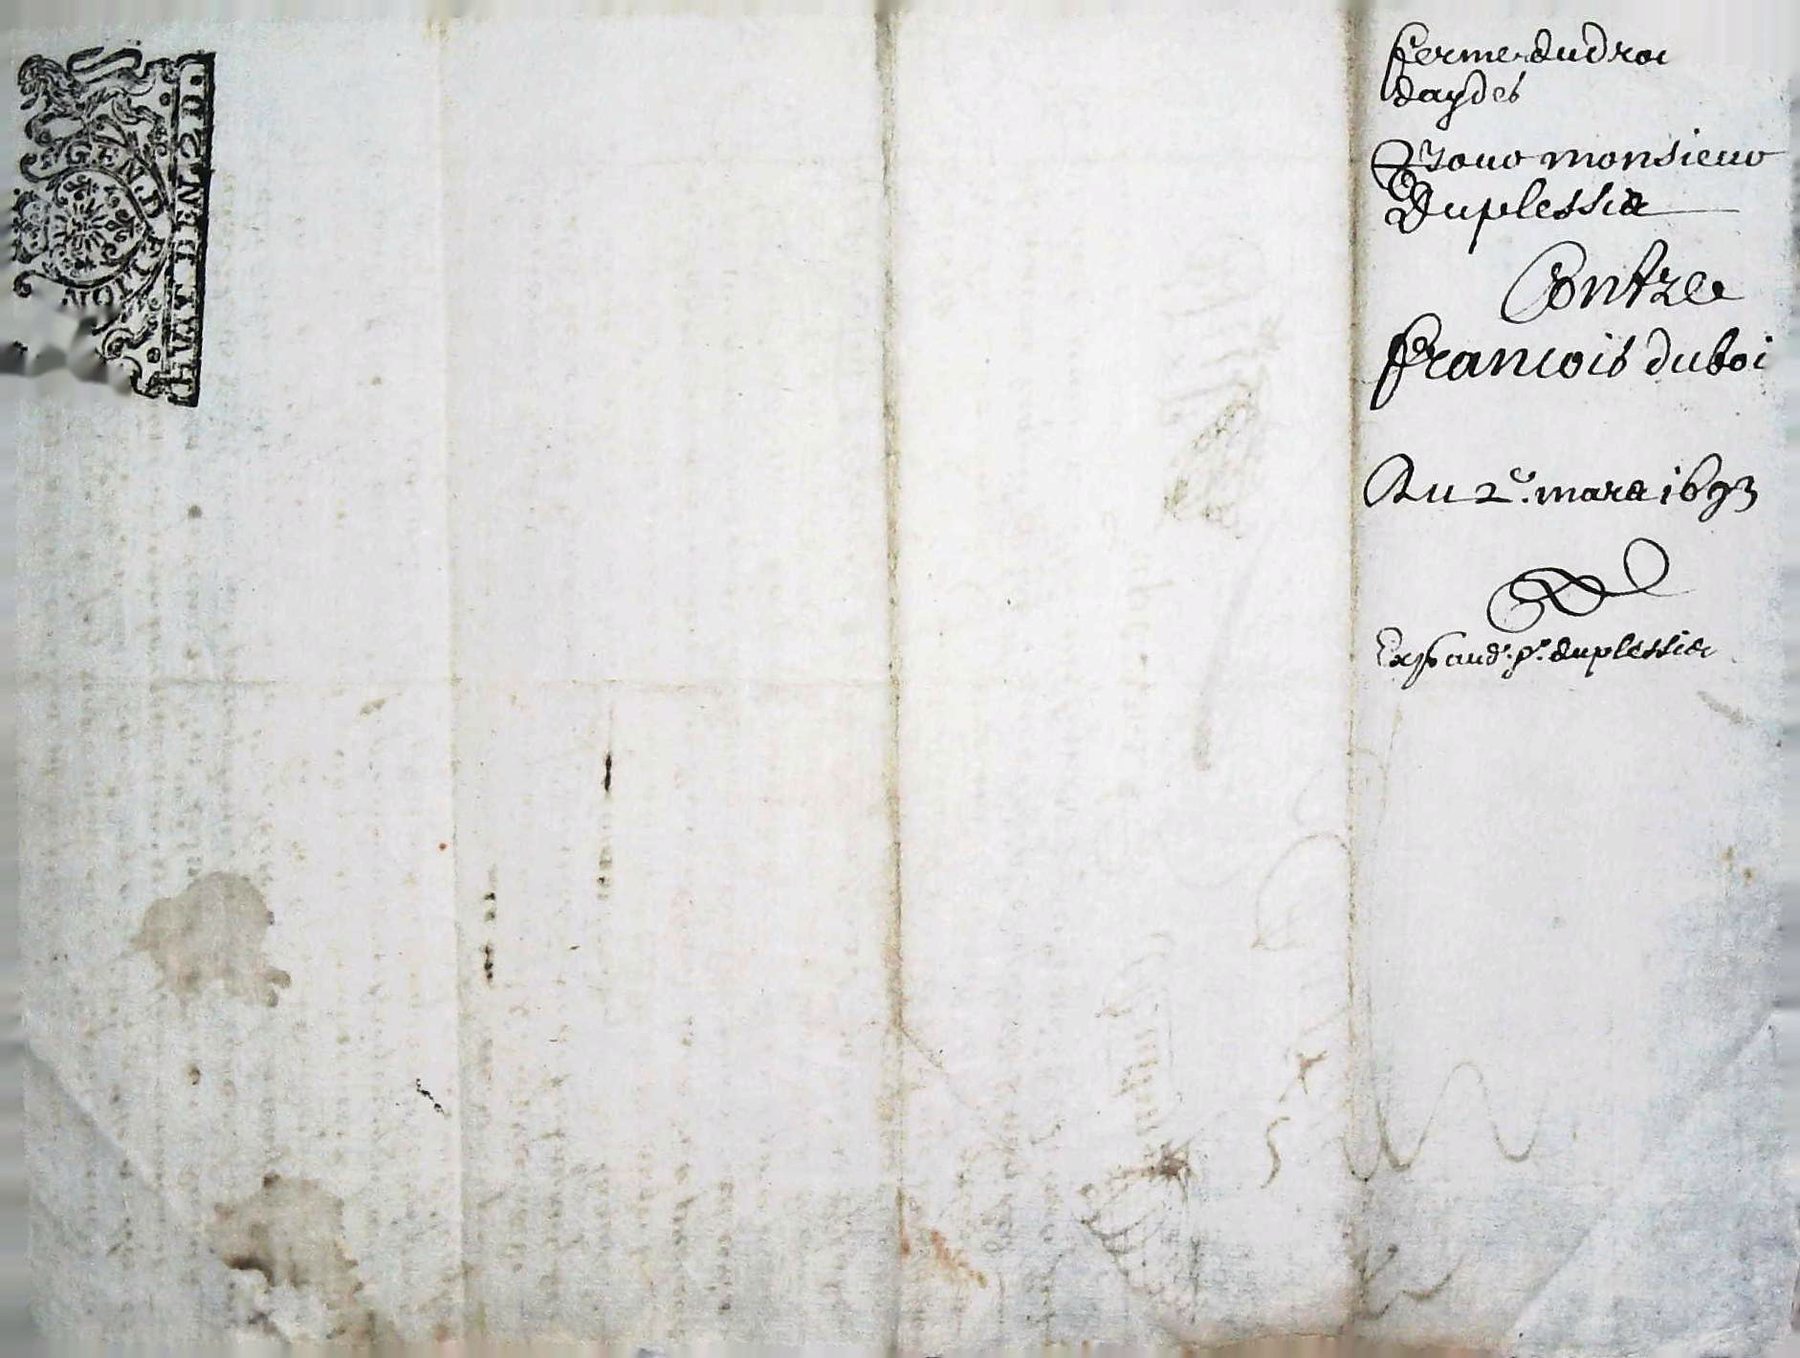 GEND E LION
HVIT DEN 2 D.
ferme du droi
daydes
Pour monsieur
Duplessis
Contre
francois duboi
Du 2e. mars 1693
Exp aud. pr. duplessis